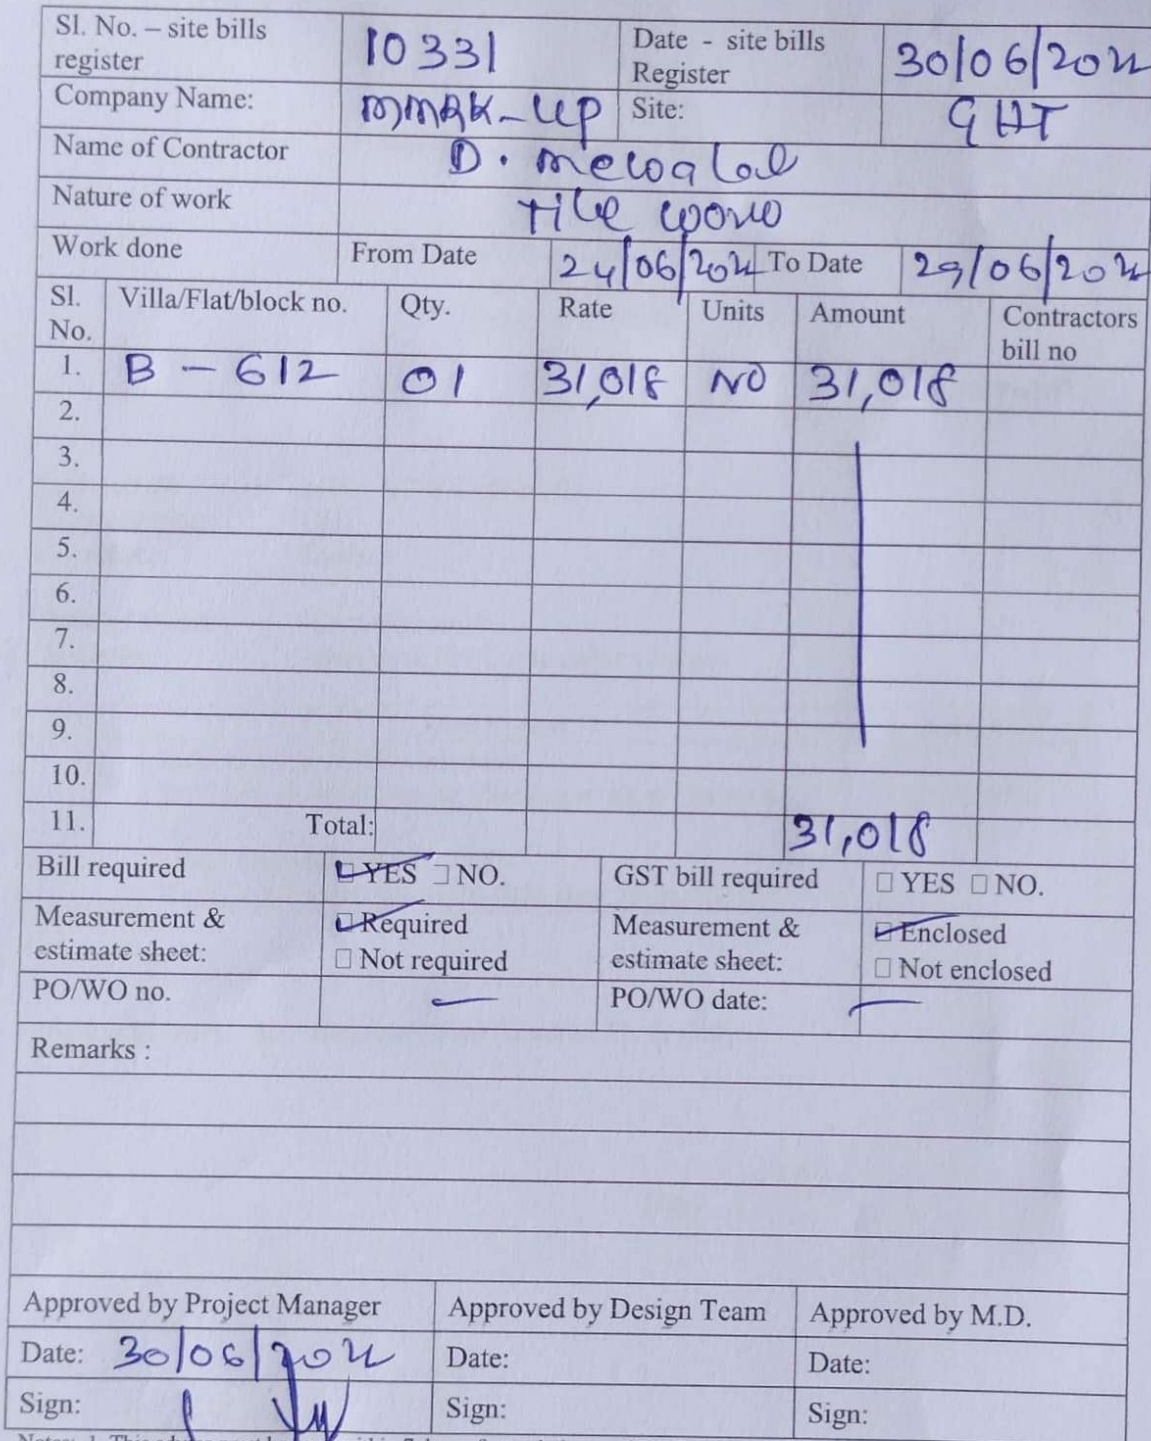 Sl. No. – site bills register 10331 Date - site bills Register 30/06/2024
Company Name: Site: GHT
Name of Contractor D.
Nature of work Tile work
Work done From Date 24/06/2024 To Date 29/06/2024
Sl. No. Villa/Flat/block no. Qty. Rate Units Amount Contractors bill no
1. B - 612 01 31,018 NO 31,018
2.
3.
4.
5.
6.
7.
8.
9.
10.
11. Total: 31,018
Bill required YES NO. GST bill required YES NO.
Measurement & estimate sheet: Required Not required Measurement & estimate sheet: Enclosed Not enclosed
PO/WO no. PO/WO date:
Remarks :
Approved by Project Manager Approved by Design Team Approved by M.D.
Date: 30/06/2024 Date: Date:
Sign: Sign: Sign: